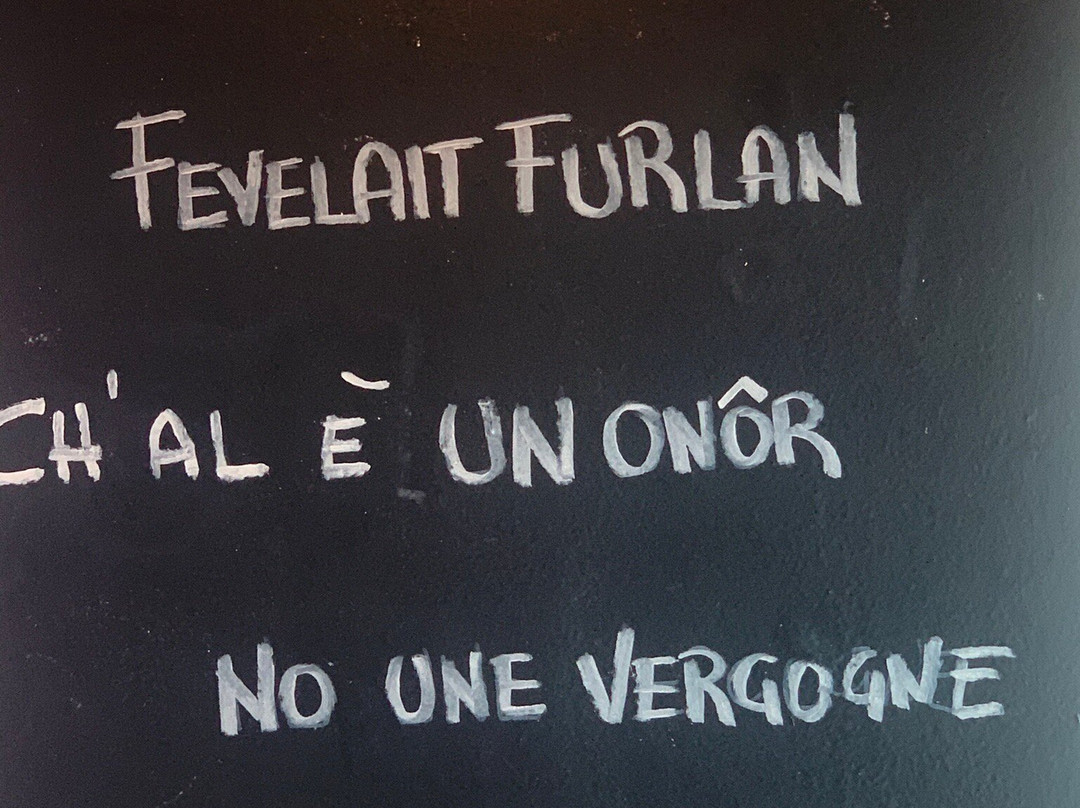 FEVELAIT FURLAN
CH'AL È UN ONÔR
NO UNE VERGOGNE